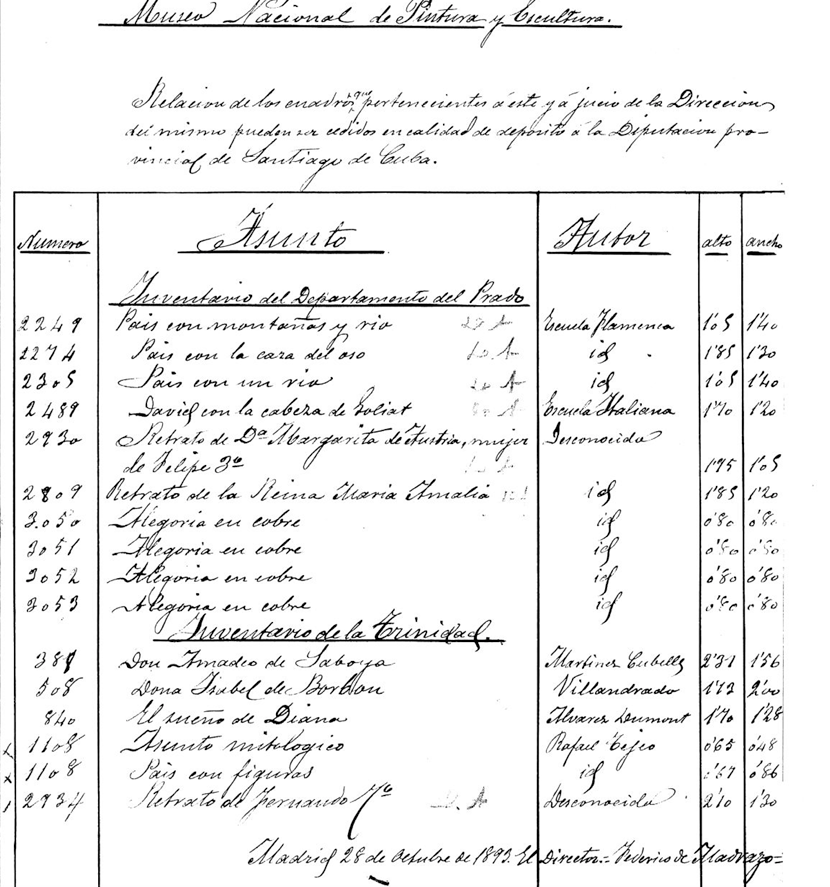 Museo Nacional de Pintura y Escultura.
Relacion de los cuadros que pertenecientes á este y á juicio de la Direccion
del mismo pueden ser cedidos en calidad de deposito á la Diputacion pro-
vincial de Santiago de Cuba.
Numero Asunto Autor alto ancho
Inventario del Departamento del Prado
2249 Pais con montañas y rio Escuela Flamenca 1'05 1'40
2274 Pais con la caza del oso id 1'85 1'30
2305 Pais con un rio id 1'05 1'40
2489 David con la cabeza de Goliat Escuela Italiana 1'70 1'20
2730 Retrato de Dª Margarita de Austria, mujer Desconocido
de Felipe 3º 1'95 1'05
2809 Retrato de la Reina Maria Amalia id 1'85 1'20
3050 Alegoria en cobre id 0'80 0'80
3051 Alegoria en cobre id 0'80 0'80
3052 Alegoria en cobre id 0'80 0'80
3053 Alegoria en cobre id 0'80 0'80
Inventario de la Trinidad.
Don Amadeo de Saboya Martinez Cubells 2'31 1'56
508 Dona Isabel de Borbon Villandrado 2'00
840 El sueño de Diana Alvarez Dumont 1'70 1'28
x 1108 Asunto mitologico Rafael Tejeo 0'65 0'48
x 1108 Pais con figuras id 0'67 0'86
Retrato de Fernando 7º Desconocido 2'10 1'30
Madrid 28 de Octubre de 1893. El Director.- Federico de Madrazo=